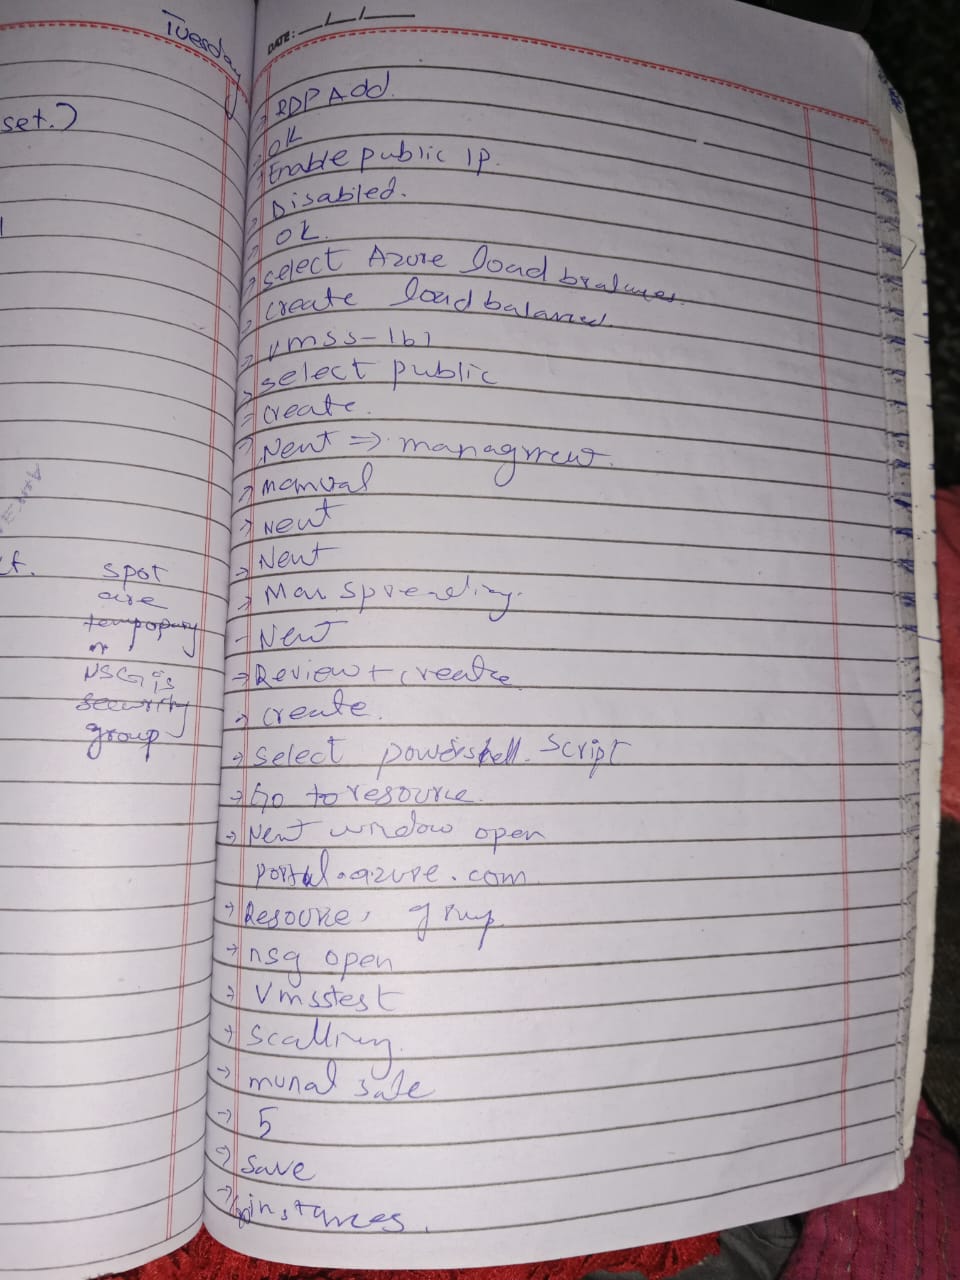 Tuesday
set.)
ct. spot
are
temporary
NSG is
security
group
DATE: __/__/____
→ RDP Add.
→ ok
→ Enable public IP.
→ Disabled.
→ ok.
→ select Azure load
→ create load balanced.
→ vmss-lb1
→ select public
→ create.
→ Next => managment.
→ manual
→ Next
→ Next
→ Max spreading.
→ Next
→ Review + create
→ create.
→ select powershell script
→ Go to resource.
→ Next window open
portal.azure.com
→ Resource, group
→ nsg open
→ Vmsstest
→ scalling.
→ munal sale
→ 5
→ save
→ instances.